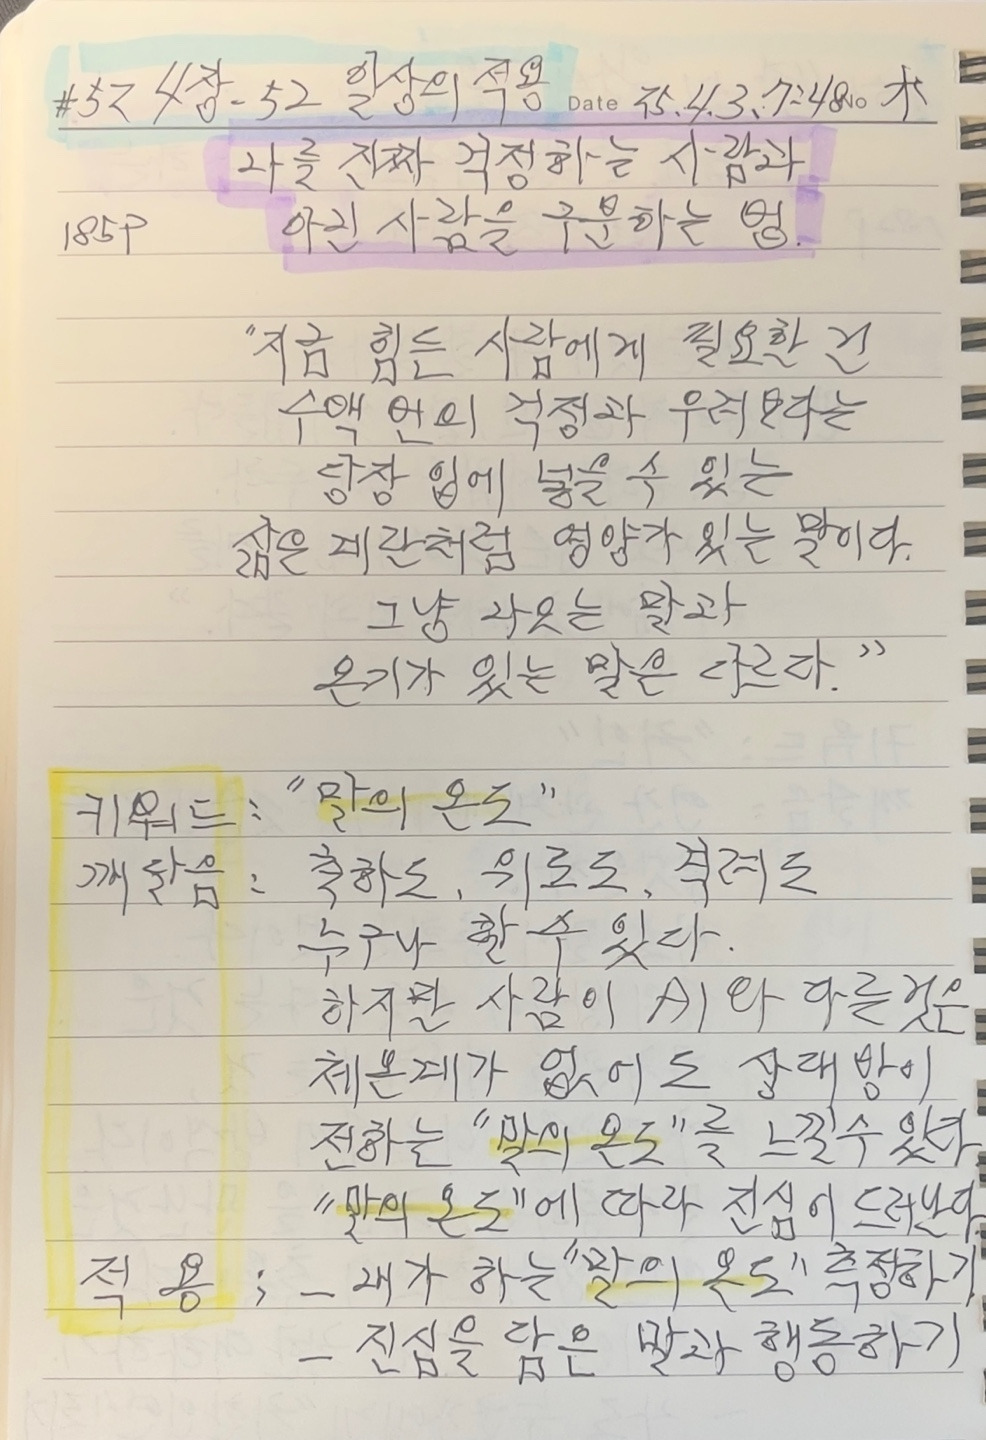 #52 4장-52 일상의 적용 Date 25.4.3. 7:48 No 木
나를 진짜 걱정하는 사람과
185P 아닌 사람을 구분하는 법.
"지금 힘든 사람에게 필요한 건
수액 언의 걱정과 우려보다는
당장 입에 넣을 수 있는
삶은 계란처럼 영양가 있는 말이다.
그냥 나오는 말과
온기가 있는 말은 다르다."
키워드 : "말의 온도"
깨달음 : 축하도, 위로도, 격려도
누구나 할 수 있다.
하지만 사람이 AI와 다를것은
체온계가 없어도 상대방이
전하는 "말의 온도"를 느낄수 있다
"말의 온도"에 따라 진심이 드러난다
적용 ; - 내가 하는 "말의 온도" 측정하기
- 진심을 담은 말과 행동하기